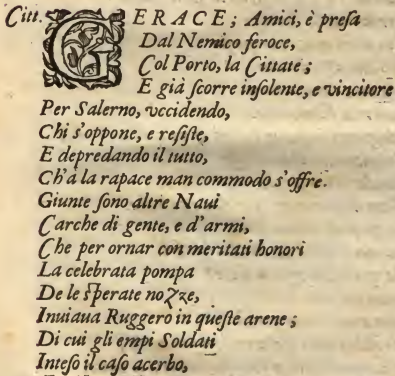 Citt. GERACE; Amici, è presa
Dal Nemico feroce,
Col Porto, la Cittate;
E già scorre insolente, e vincitore
Per Salerno, vccidendo,
Chi s'oppone, e resiste,
E depredando il tutto,
Ch'à la rapace man commodo s'offre.
Giunte sono altre Naui
Carche di gente, e d'armi,
Che per ornar con meritati honori
La celebrata pompa
De le sperate nozze,
Inuiaua Ruggero in queste arene;
Di cui gli empi Soldati
Inteso il caso acerbo,